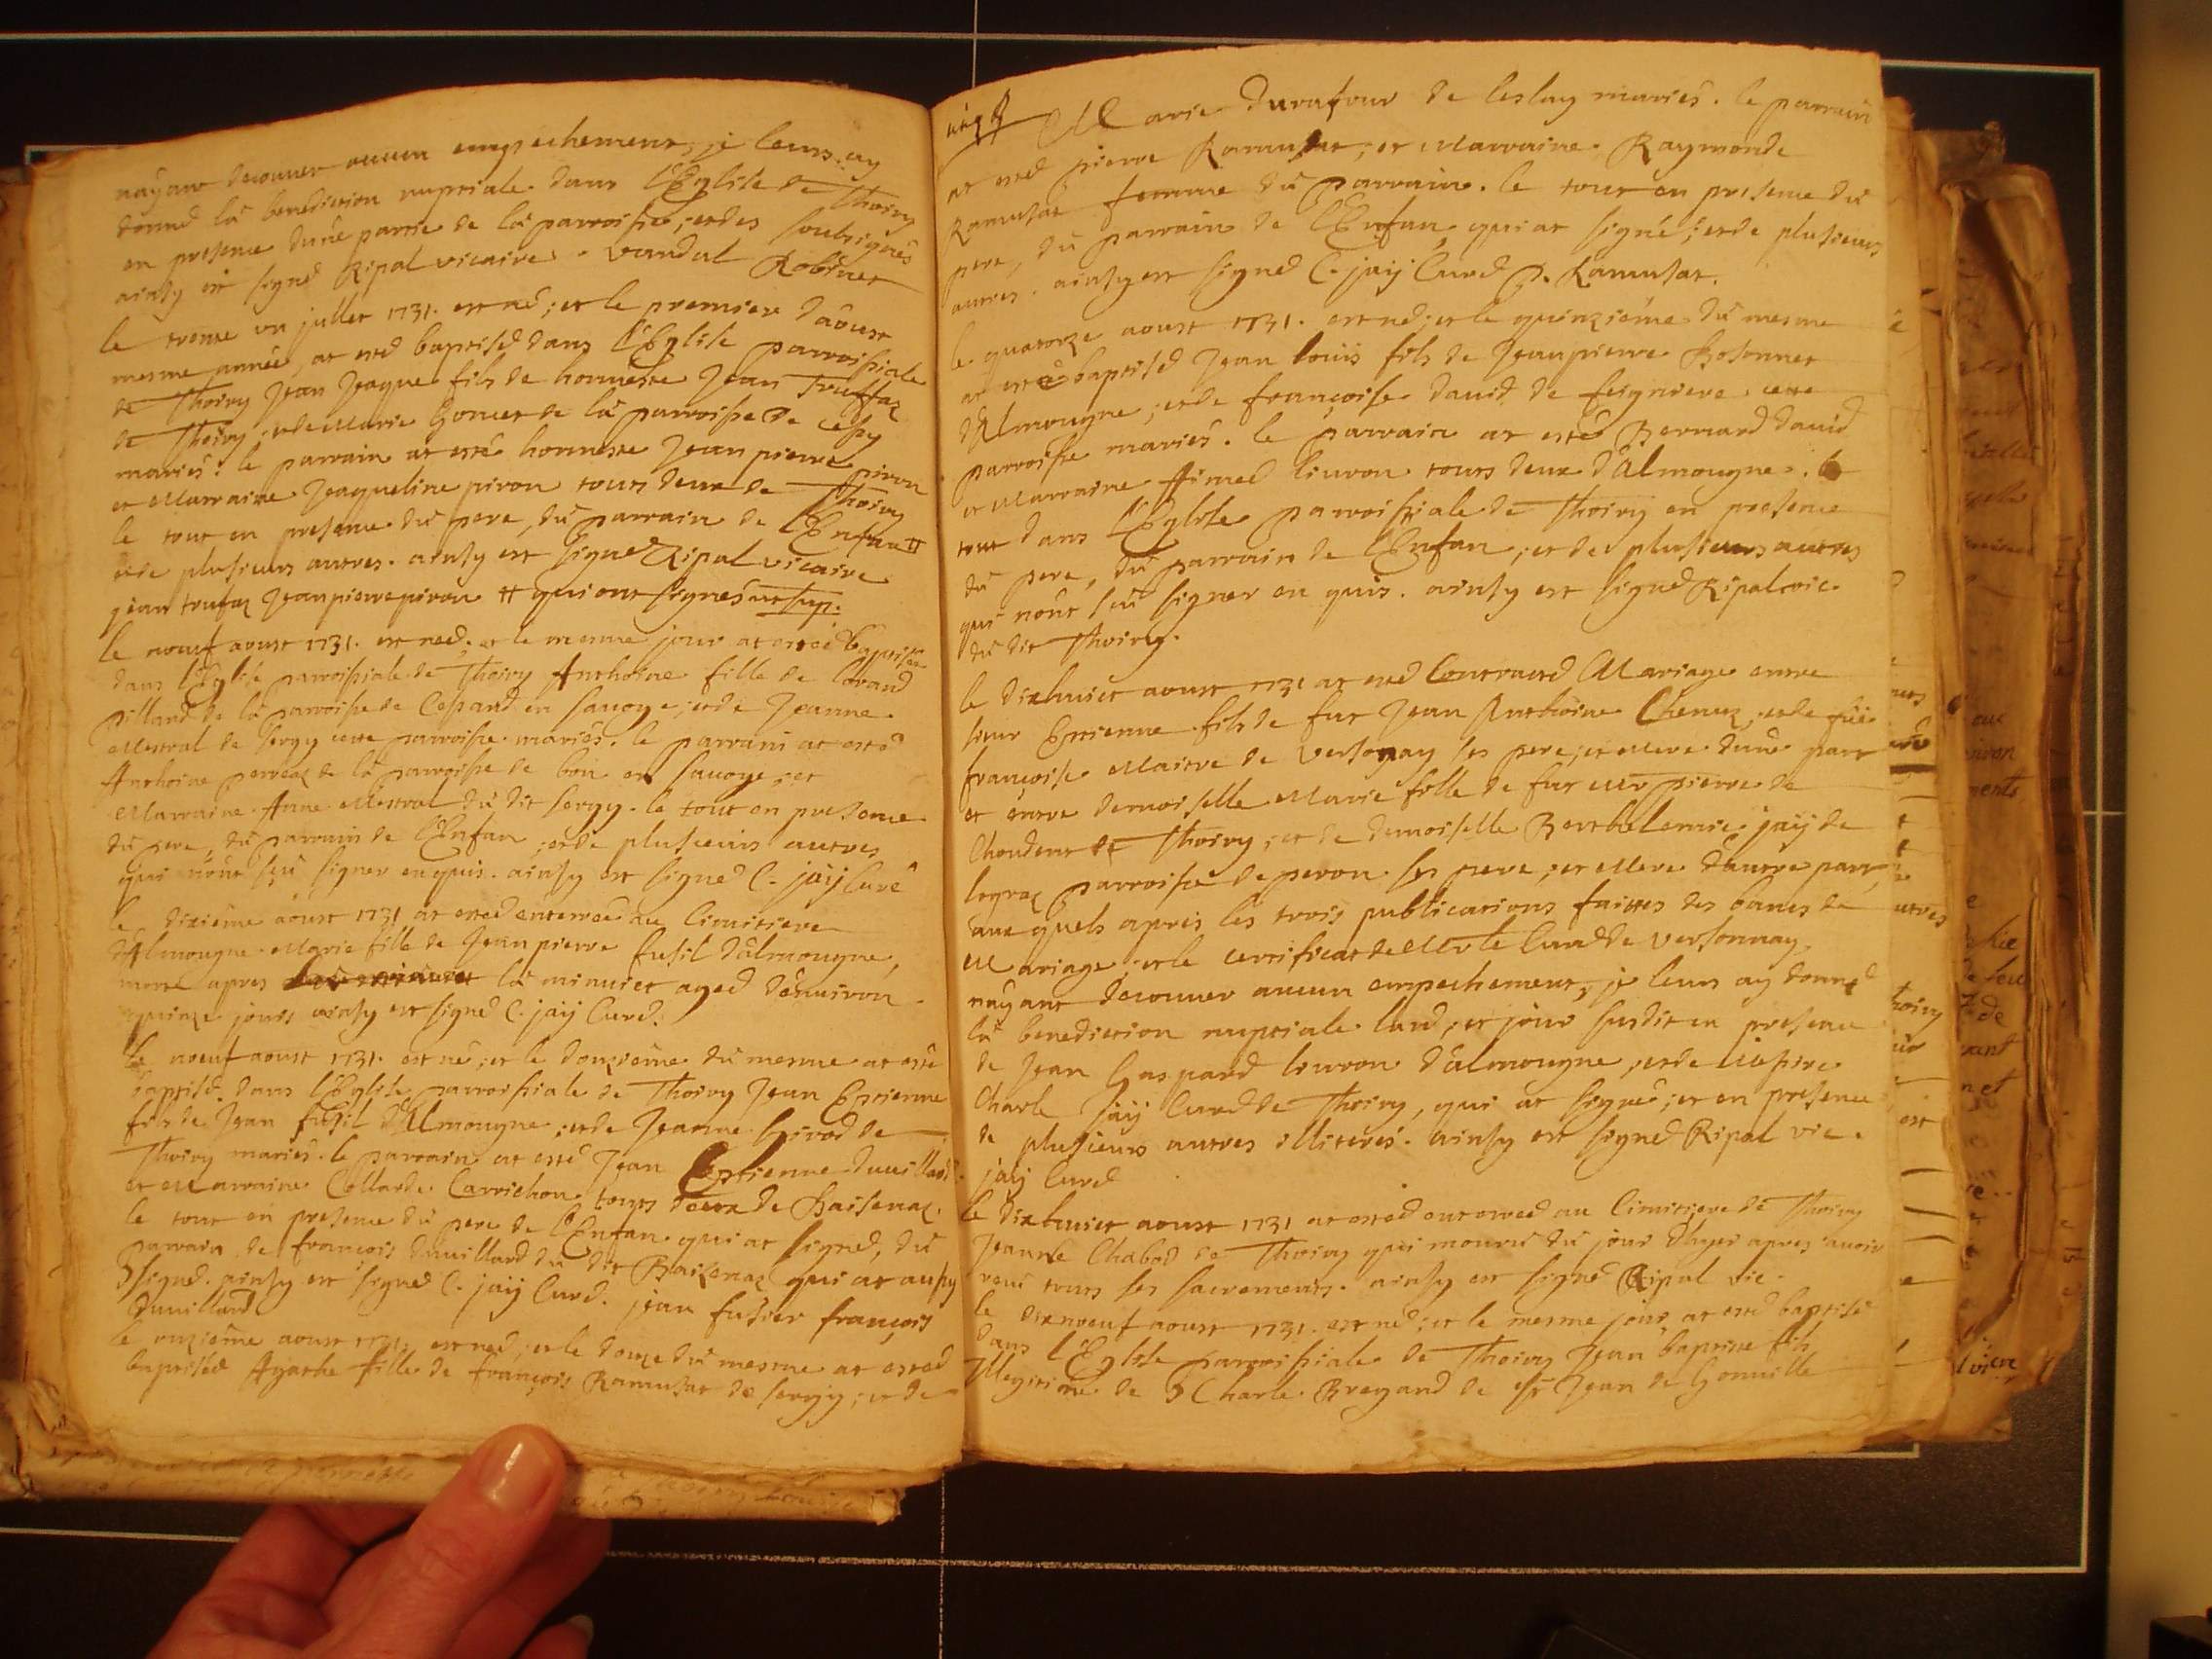 nayant decouver aucun empechement, je leurs ay
donné là benediction nuptiale dans l'Eglise de Thoiry
en presence dune partie de là parroisse; et des soubsignés
ainsy est signé Ripal vicaire. Vandal Robinet
le trente un jullet 1731. est né; et le premier d'aoust
mesme année, at esté baptisé dans l'Eglise parroissiale
de Thoiry Jean Jeaque fils de honneste Jean Truffaz
de Thoiry; et de Marie Gonet de là parroisse de Cessy
mariés. le parrain at esté honneste Jean pierre piron
et Marraine Jeaqueline piron touts deux de Thoiry
le tout en presence du pere, du parrain de l'Enfan #
et de plusieurs autres. ainsy est signé Ripal vicaire
jean trufaz Jean pierre piron # qui ont signés ut sup.
le neuf aoust 1731. est neé; et le mesme jour at esteé baptisée
dans l'Eglise parroissiale de Thoiry Anthoine fille de
pilland de là parroisse de en savoye; et de Jeanne
Mestral de sergy cette parroisse mariés. le parrain at esté
Anthoine perreaz de là parroisse de en savoye; et
Marraine Anne Mestral du dit sergy. le tout en presence
du pere, du parrain de l'Enfan, et de plusieurs autres
qui n'ont sçu signer enquis. ainsy est signé C. jaÿ Curé
le dixiême aoust 1731 at esteé enterreé au Cimitiere
d'Almougne Marie fille de Jean pierre fusil d'almougne,
morte apres là minuict ageé d'environ
quinze jours ainsy est signé C. jaÿ Curé.
le neuf aoust 1731. est né; et le douzieme du mesme at esté
baptisé dans l'Eglise parroissiale de Thoiry Jean Estienne
fils de Jean fusil d'Almougne; et de Jeanne Girod de
Thoiry mariés. le parrain at esté Jean Estienne duvillard
et Marraine Collarde Carrichon touts deux de Baisenaz.
le tout en presence du pere de l'Enfan qui at signé, du
parrain de françois duvillard du dit Baizenaz qui at aussy
signé. ainsy est signé C. jaÿ Curé. jean fusier françois
Duvillard
le onzieme aoust 1731. est neé; et le douze du mesme at esteé
baptiseé Agathe fille de françois Ramusat de sergy; et de
Marie Durafour de leslay mariés. le parrain
at esté pierre Ramusat; et Marraine Raymonde
Ramusat femme du parrain. le tout en presence du
pere, du parrain de l'Enfan, qui at signé; et de plusieurs
autres. ainsy est signé C. jaÿ Curé P. Ramusat.
le quatorze aoust 1731. est né; et le quinzieme du mesme
at esté baptisé Jean louis fils de Jean pierre Bosonnet
d'Almougne; et de françoise david de feigniere cette
parroisse mariés. le parrain at esté Bernard david
et Marraine Aimeé liuron touts deux d'Almougne. le
tout dans l'Eglise parroissiale de Thoiry en presence
du pere, du parrain de l'Enfan; et de plusieurs autres
qui n'ont sçu signer enquis. ainsy est signé Ripal vic.
du dit Thoiry.
le dixhuict aoust 1731 at esté Contracté Mariage entre
sieur Estienne fils de fut Jean Anthoine Chenuz; et de fuë
françoise Maitre de Versonay ses pere; et Mere d'une part
et entre demoiselle Marie fille de fut Mr pierre de
Choudens de Thoiry; et de demoiselle Berthelemie jaÿ de
lograz parroisse de peron ses pere; et Mere d'autre part,
aux quels apres les trois publications faittes des bancs de
Mariage; et le certificat de Mr le Curé de Versonnay.
n'ayant decouver aucun empechement, je leurs ay donné
là benediction nuptiale l'an; et jour susdit en presence
de Jean Gaspard liuron d'almougne; et de Messire
Charle jaÿ Curé de Thoiry, qui at signé; et en presence
de plusieurs autres illiterés. ainsy est signé Ripal vic.
jaÿ Curé
le dixhuict aoust 1731 at esteé enterreé au Cimitiere de Thoiry
Jeanne Chabod de Thoiry qui mouru du jour d'hyer apres avoir
reçu touts ses sacrements. ainsy est signé Ripal vic.
le dixneuf aoust 1731. est né; et le mesme jour at esté baptisé
dans l'Eglise parroissiale de Thoiry Jean baptiste fils
Illegitime de Charle Bregand de st Jean de Gonville